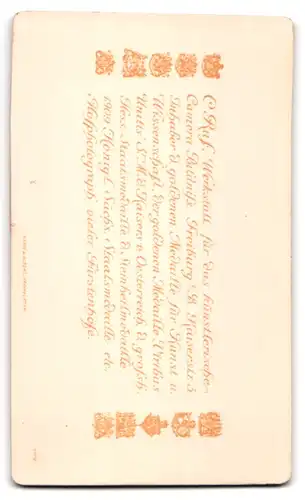 C. Ruf, Werkstatt für das künstlerische
Camera Bildniß. Freiburg i/B. Kaiserstr. 5
Inhaber d. goldenen Medaille für Kunst u.
Wissenschaft, der goldenen Medaille Viribus
Unitis S.M. d. Kaisers v. Oesterreich, d. großh.
Hess. Staatsmedaille d. Steinheilmedaille
1909 Königl. Sächs. Staatsmedaille etc.
Hofphotograph vieler Fürstenhöfe.